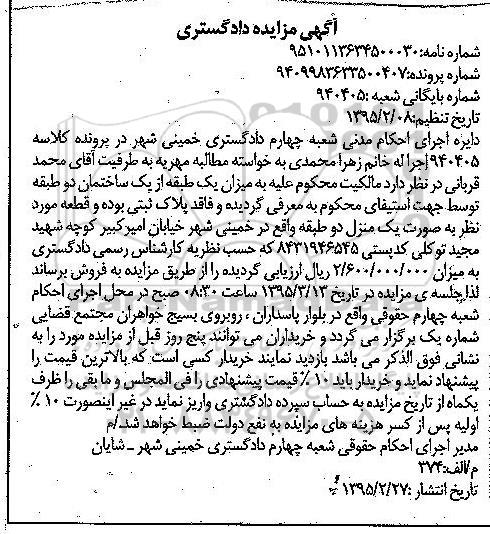 آگهی مزایده دادگستری
شماره نامه:۹۵۱۰۱۱۳۶۳۴۵۰۰۰۳۰
شماره پرونده:۹۴۰۹۹۸۳۶۳۳۵۰۰۴۰۷
شماره بایگانی شعبه :۹۴۰۴۰۵
تاریخ تنظیم:۱۳۹۵/۲/۰۸
دایره اجرای احکام مدنی شعبه چهارم دادگستری خمینی شهر در پرونده کلاسه
۹۴۰۴۰۵اجرا له خانم زهرا محمدی به خواسته مطالبه مهریه به طرفیت آقای محمد
قربانی در نظر دارد مالکیت محکوم علیه به میزان یک طبقه از یک ساختمان دو طبقه
توسط جهت استیفای محکوم به معرفی گردیده و فاقد پلاک ثبتی بوده و قطعه مورد
نظر به صورت یک منزل دو طبقه واقع در خمینی شهر خیابان امیرکبیر کوچه شهید
مجید توکلی کدپستی ۸۴۳۱۹۴۶۵۴۵ که حسب نظریه کارشناس رسمی دادگستری
به میزان ۲/۶۰۰/۰۰۰/۰۰۰ ریال ارزیابی گردیده را از طریق مزایده به فروش برساند
لذا جلسه ی مزایده در تاریخ ۱۳۹۵/۳/۱۳ ساعت ۰۸:۳۰ صبح در محل اجرای احکام
شعبه چهارم حقوقی واقع در بلوار پاسداران ، روبروی بسیج خواهران مجتمع قضایی
شماره یک برگزار می گردد و خریداران می توانند پنج روز قبل از مزایده مورد را به
نشانی فوق الذکر می باشد بازدید نمایند خریدار کسی است که بالاترین قیمت را
پیشنهاد نماید و خریدار باید ۱۰٪ قیمت پیشنهادی را فی المجلس و مابقی را ظرف
یکماه از تاریخ مزایده به حساب سپرده دادگستری واریز نماید در غیر اینصورت ۱۰٪
اولیه پس از کسر هزینه های مزایده به نفع دولت ضبط خواهد شد./م
مدیر اجرای احکام حقوقی شعبه چهارم دادگستری خمینی شهر ـ شایان
م/الف:۳۷۴
تاریخ انتشار :۱۳۹۵/۲/۲۷